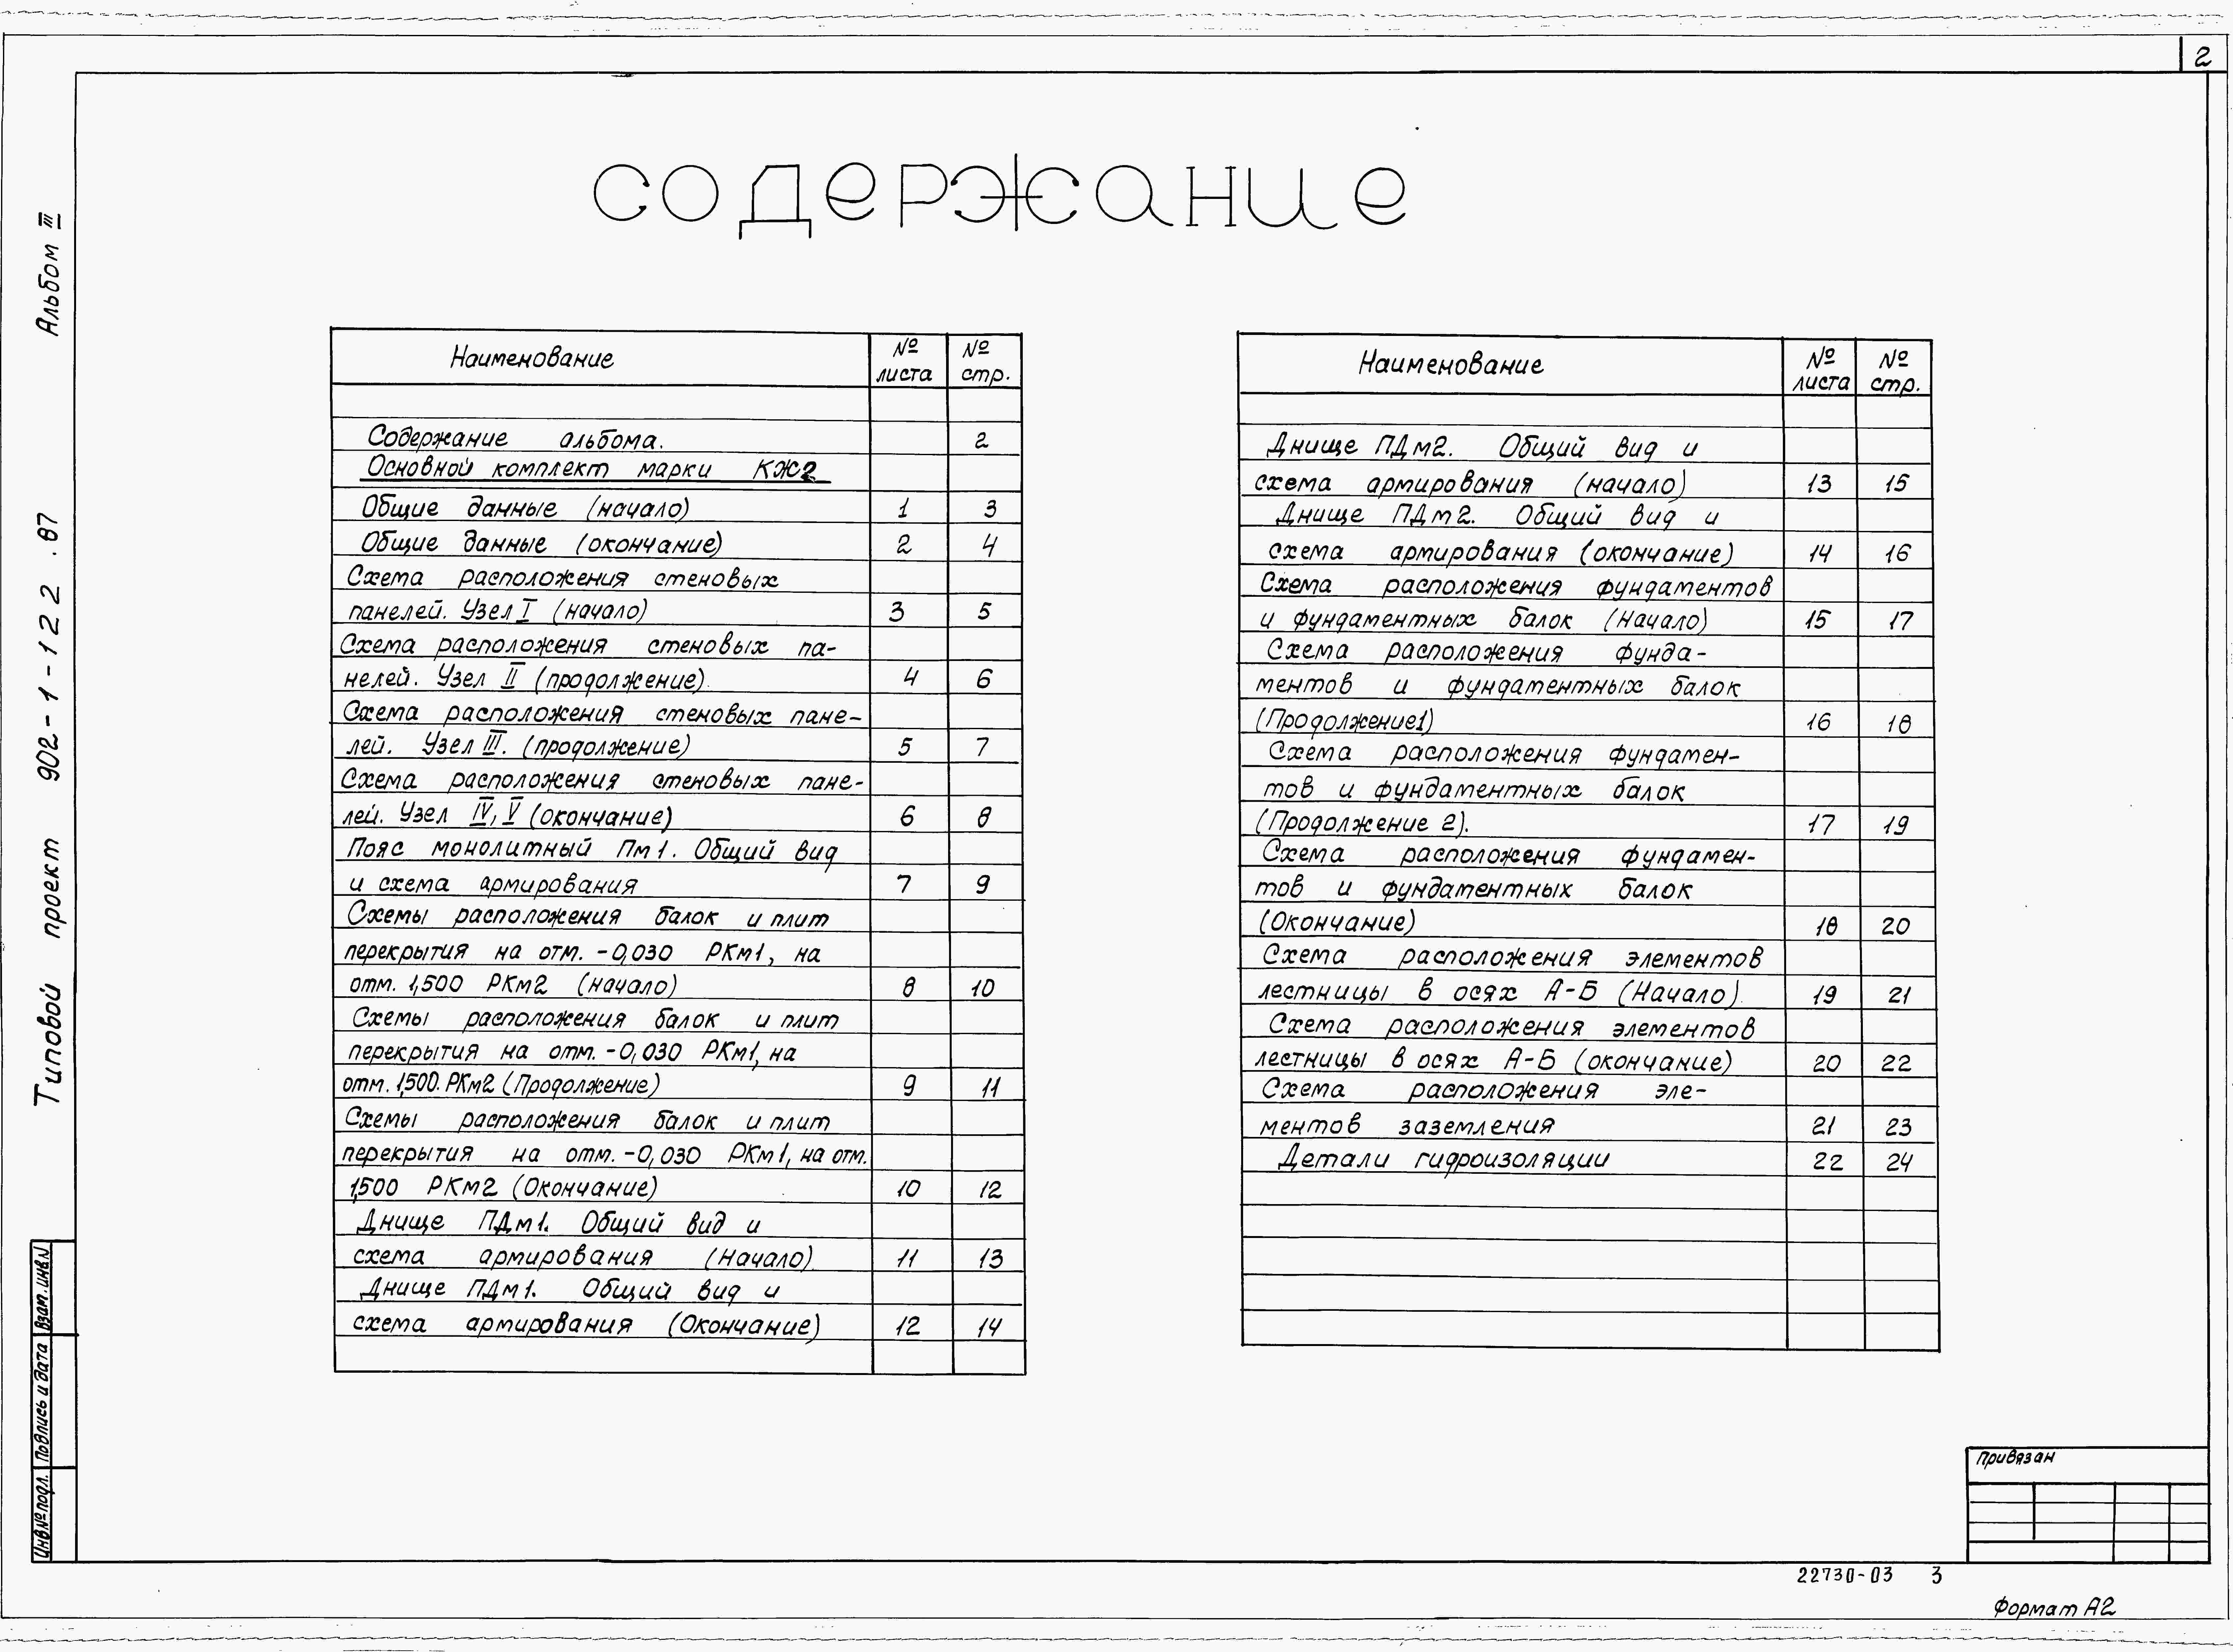 2
содержание
Альбом III
Типовой проект 902-1-122.87
Наименование № листа № стр.
Содержание альбома. 2
Основной комплект марки КЖ2
Общие данные (начало) 1 3
Общие данные (окончание) 2 4
Схема расположения стеновых
панелей. Узел I (начало) 3 5
Схема расположения стеновых па-
нелей. Узел II (продолжение). 4 6
Схема расположения стеновых пане-
лей. Узел III. (продолжение) 5 7
Схема расположения стеновых пане-
лей. Узел IV, V (окончание) 6 8
Пояс монолитный Пм1. Общий вид
и схема армирования 7 9
Схемы расположения балок и плит
перекрытия на отм. -0,030 РКм1, на
отм. 1,500 РКм2 (начало) 8 10
Схемы расположения балок и плит
перекрытия на отм. -0,030 РКм1, на
отм. 1,500. РКм2 (Продолжение) 9 11
Схемы расположения балок и плит
перекрытия на отм. -0,030 РКм1, на отм.
1,500 РКм2 (Окончание) 10 12
Днище ПДм1. Общий вид и
схема армирования (Начало). 11 13
Днище ПДм1. Общий вид и
схема армирования (Окончание) 12 14
Наименование № листа № стр.
Днище ПДм2. Общий вид и
схема армирования (начало) 13 15
Днище ПДм2. Общий вид и
схема армирования (окончание) 14 16
Схема расположения фундаментов
и фундаментных балок (Начало) 15 17
Схема расположения фунда-
ментов и фундаментных балок
(Продолжение1) 16 18
Схема расположения фундамен-
тов и фундаментных балок
(Продолжение 2). 17 19
Схема расположения фундамен-
тов и фундаментных балок
(Окончание) 18 20
Схема расположения элементов
лестницы в осях А-Б (Начало). 19 21
Схема расположения элементов
лестницы в осях А-Б (окончание) 20 22
Схема расположения эле-
ментов заземления 21 23
Детали гидроизоляции 22 24
Взам. инв. N
Подпись и дата
Инв № подл.
Привязан
22730-03 3
Формат А2